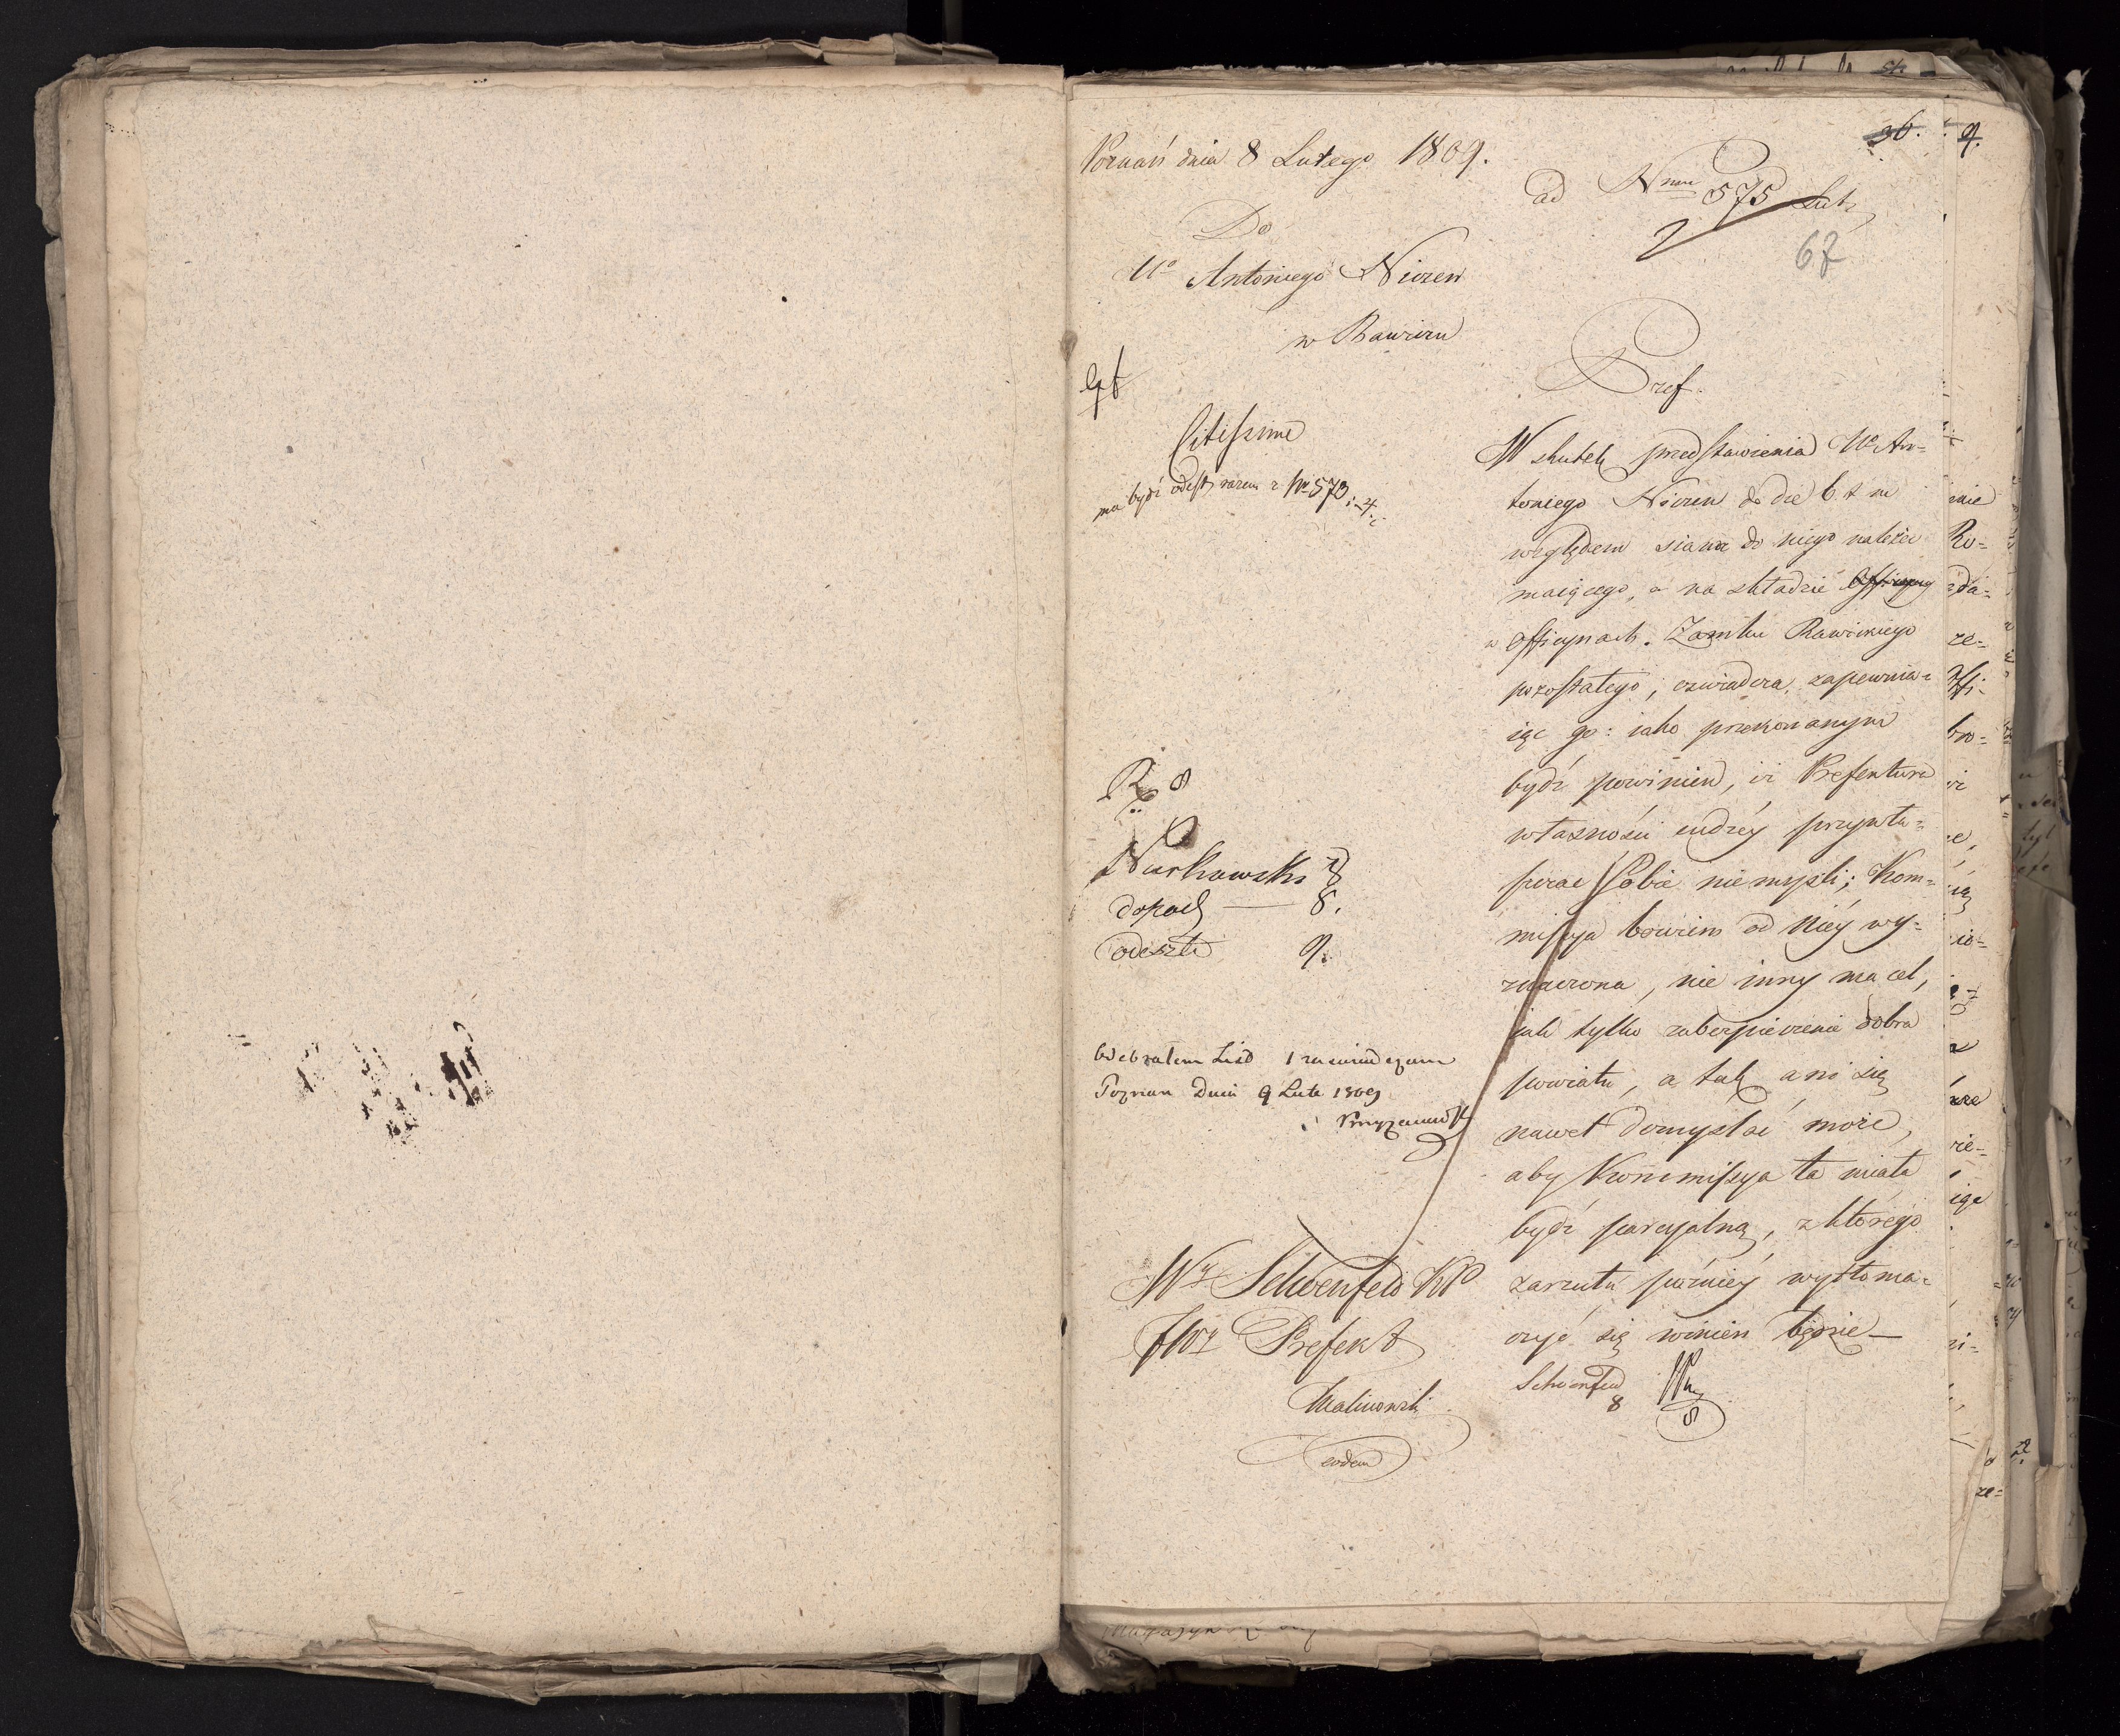 36.
Poznań dnia 8 Lutego 1809.
ad Nrum 575 Lut.
2
67
Do
Wo Antoniego Niczen
w Rawiczu
Pref.
Citissime
ma bydź odesł. razem z No 573 i 4.
W skutek przedstawienia Wo An-
toniego Niczen de die 6 t m
względem siana do niego należeć
maiącego, a na składzie
w Officynach Zamku Rawickiego
pozostałego, oświadcza, zapewnia-
iąc go: iako przekonanym
bydź powinien, iż Prefektura
własności cudzéy przywła-
szczac sobie niemyśli; Kom-
missya bowiem od niéy wy-
znaczona, nie inny ma cel,
iak tylko zabezpieczenie dobra
powiatu, a tak ani się
nawet domyslać może,
aby Kommissya ta miała
bydź parcyalną, z którego
zarzutu późniéy wytłoma-
czyć się winien będzie
Schoenfeld
8
8
8
Nurkowski 8
8.
odeszło 9.
Odebrałem List 1 zaswiadczam
Poznan Dnia 9 Lute 1809
Wy Schoenfeld RP
JWy Prefekt
Malinowski
eodem